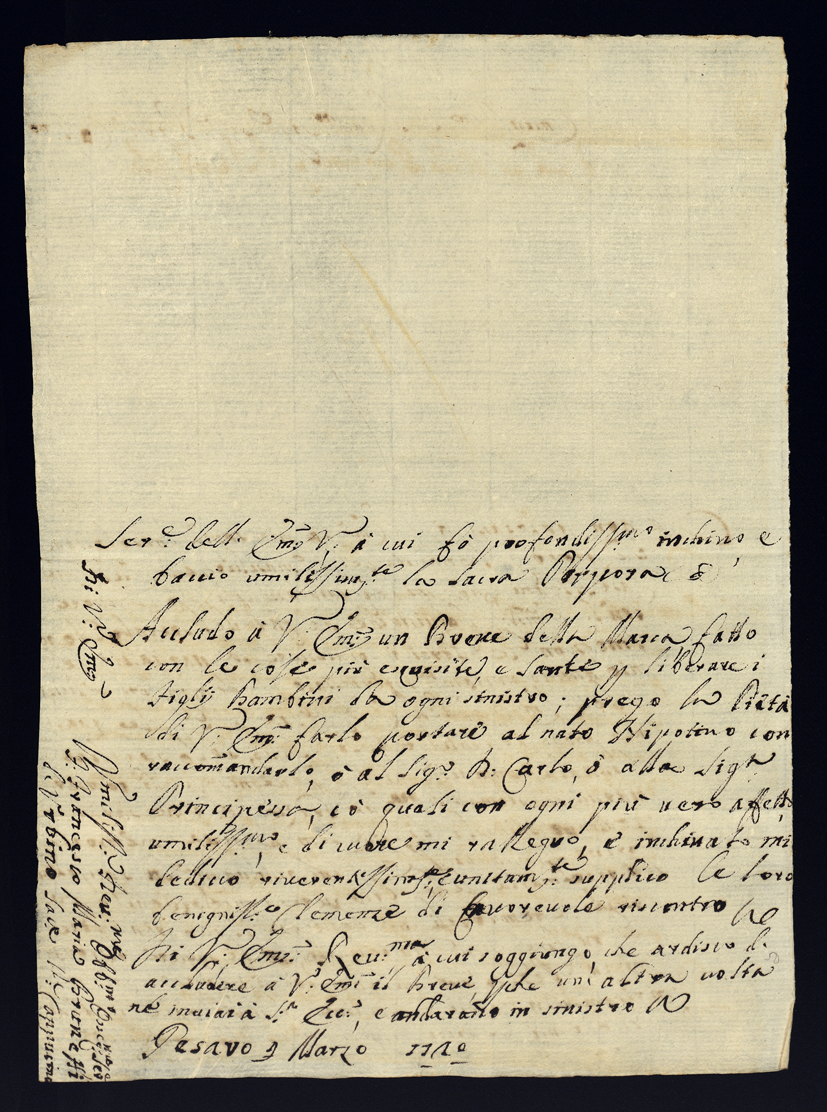 Ser.e dell' Em.za V.a à cui fò profondiss.mo inchino, e
baccio umilissim.te la Sacra Porpora &
Accludo à V.a Em.za un Breve della Marca fatto
con le cose più exquisite, e Sante p liberare i
Figli Bambini da ogni sinistro; prego la Pietà
di V.a Em.za farlo portare al nato Nipotino con
raccomandarlo, ò al Sig.r D. Carlo, ò alla Sig.ra
Principessa, cò quali con ogni più vero affetto
umiliss.mo, e di cuore mi rallegro, e inchinato mi
dedico riverentissim.te, e unitam.te supplico le loro
benigniss.e Clemenze di favorevole riscontro
Di V.a Em.za Rev.ma à cui soggiungo, che ardisco di
accludere à V.a Em.za il Breve, che un' altra volta
Pesaro 9 Marzo 1720
Di V.a Em.za
Umiliss.o Dev.mo Obblig.mo
F. Francesco Maria
d'Urbino Cappuccino